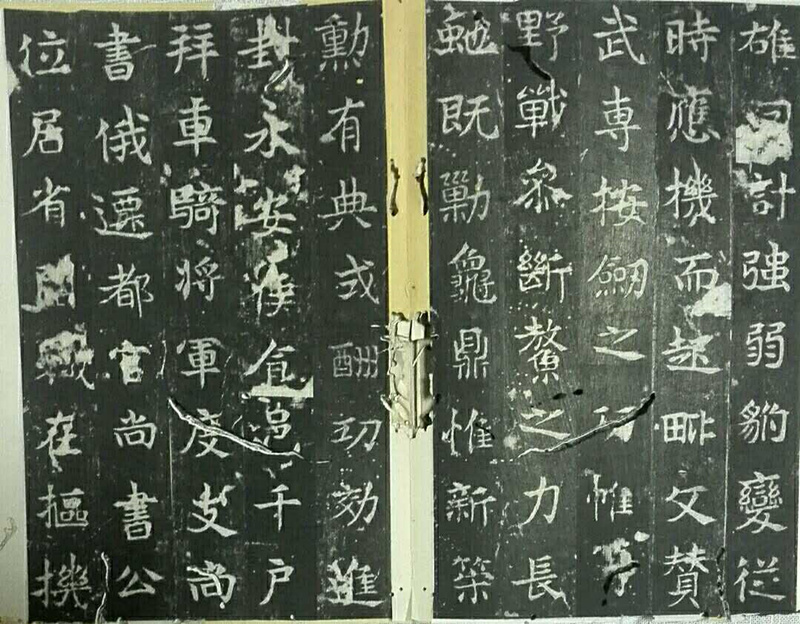 雄計強弱豹變従
時應機而起毗文賛
武専按劒之功惟
野戰叅斷鼇之力長
虵既勦龜鼎惟新築
勲有典式酬功効進
封永安侯食邑千戶
拜車騎将軍度支尚
書俄遷都官尚書公
位居省職在樞機